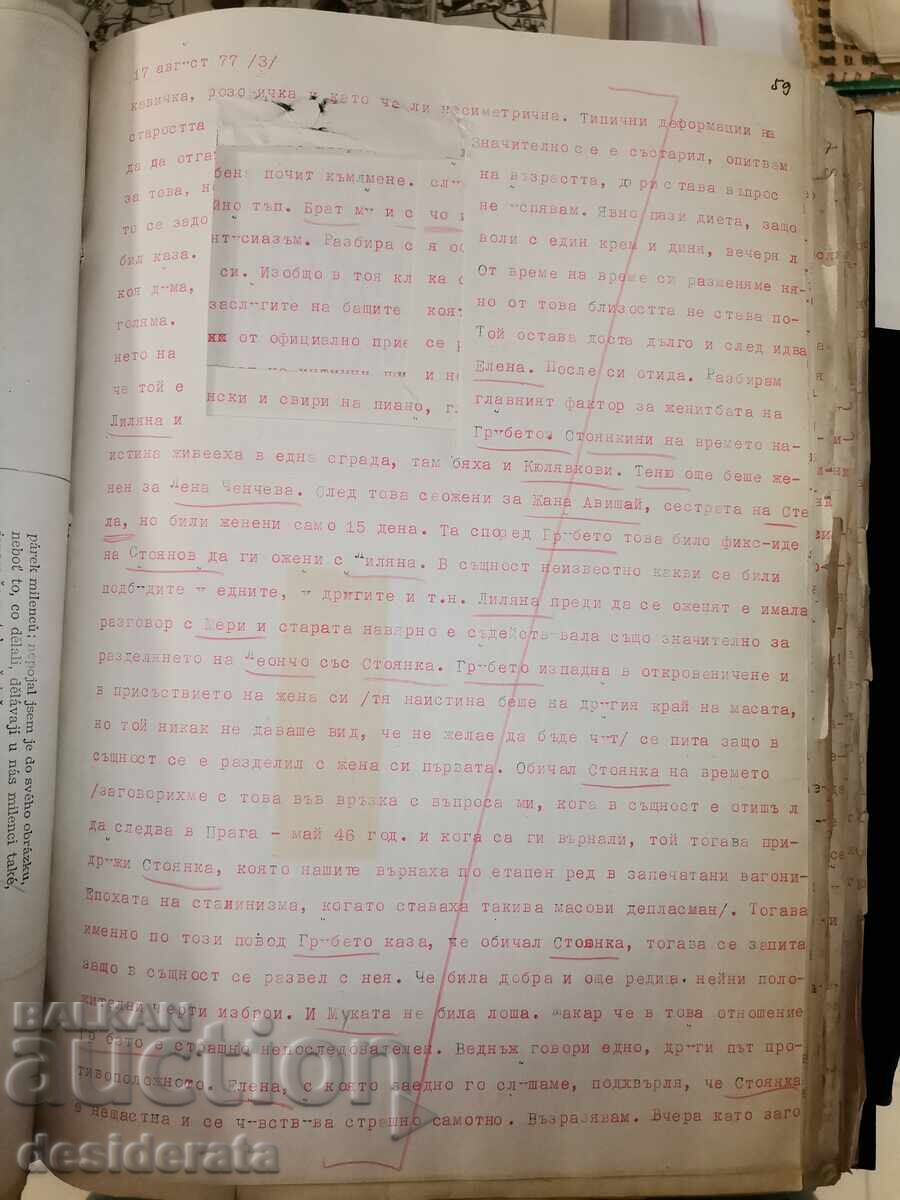 ДЕЦА
17 август 77 /3/
59
кавичка, розовичка и като че ли несиметрична. Типични деформации на
старостта
Значително се е състарил, опитвам
да да отгат
на възрастта, до
ри става въпрос
за това, но
не успявам. Явно пази диета, защо
то се задо
воли с един крем и диня, вечеря л
бил каза.
От време на време си разменяме ня-
коя дума,
но от това близостта не става по-
голяма.
Той остава доста дълго и след идва
нето на
Елена. После си отида. Разбирам
че той е
главният фактор за женитбата на
Лиляна и
Грубето. Стоянкини на времето на-
бена почит към мене.
йно тъп. Брат му и с
нтусиазъм. Разбира с
си. Изобщо в тоя кл
заслугите на бащите
от официално прие
ка
коят
се
и не
нски и свири на пиано,
истина живееха в една сграда, там бяха и Кюлявкови. Теню още беше же-
нен за Лена Ченчева. След това се ожени за Жана Авишай, сестрата на Сте
ла, но били женени само 15 дена. Та според Грубето това било фикс-иде
на Стоянов да ги ожени с Лиляна. В същност неизвестно какви са били
подбудите у едните, у другите и т.н. Лиляна преди да се оженят е имала
разговор с Мери и старата навярно е съдействувала също значително за
разделянето на Леончо със Стоянка. Грубето изпадна в откровеничене и
в присъствието на жена си /тя наистина беше на другия край на масата,
но той никак не даваше вид, че не желае да бъде чут/ се пита защо в
същност се е разделил с жена си първата. Обичал Стоянка на времето
/заговорихме с това във връзка с въпроса ми, кога в същност е отишъл
да следва в Прага - май 46 год. и кога са ги върнали, той тогава при-
дружи Стоянка, която нашите върнаха по етапен ред в запечатани вагони-
Епохата на сталинизма, когато ставаха такива масови депласман/. Тогава
именно по този повод Грубето каза, че обичал Стоянка, тогава се запита
защо в същност се развел с нея. Че била добра и още редица нейни поло-
жителни черти изброи. И Муката не била лоша. Макар че в това отношение
Грубето е страшно непоследователен. Веднъж говори едно, други път про-
тивоположното. Елена, с която заедно го слушаме, подхвърля, че Стоянка
е нещастна и се чувствува страшно самотно. Възразявам. Вчера като заго
párek milenců; nepojal jsem je do svého obrázku,
neboť to, co dělali, dělávají u nás milenci také,
BALKAN
auction
desiderata